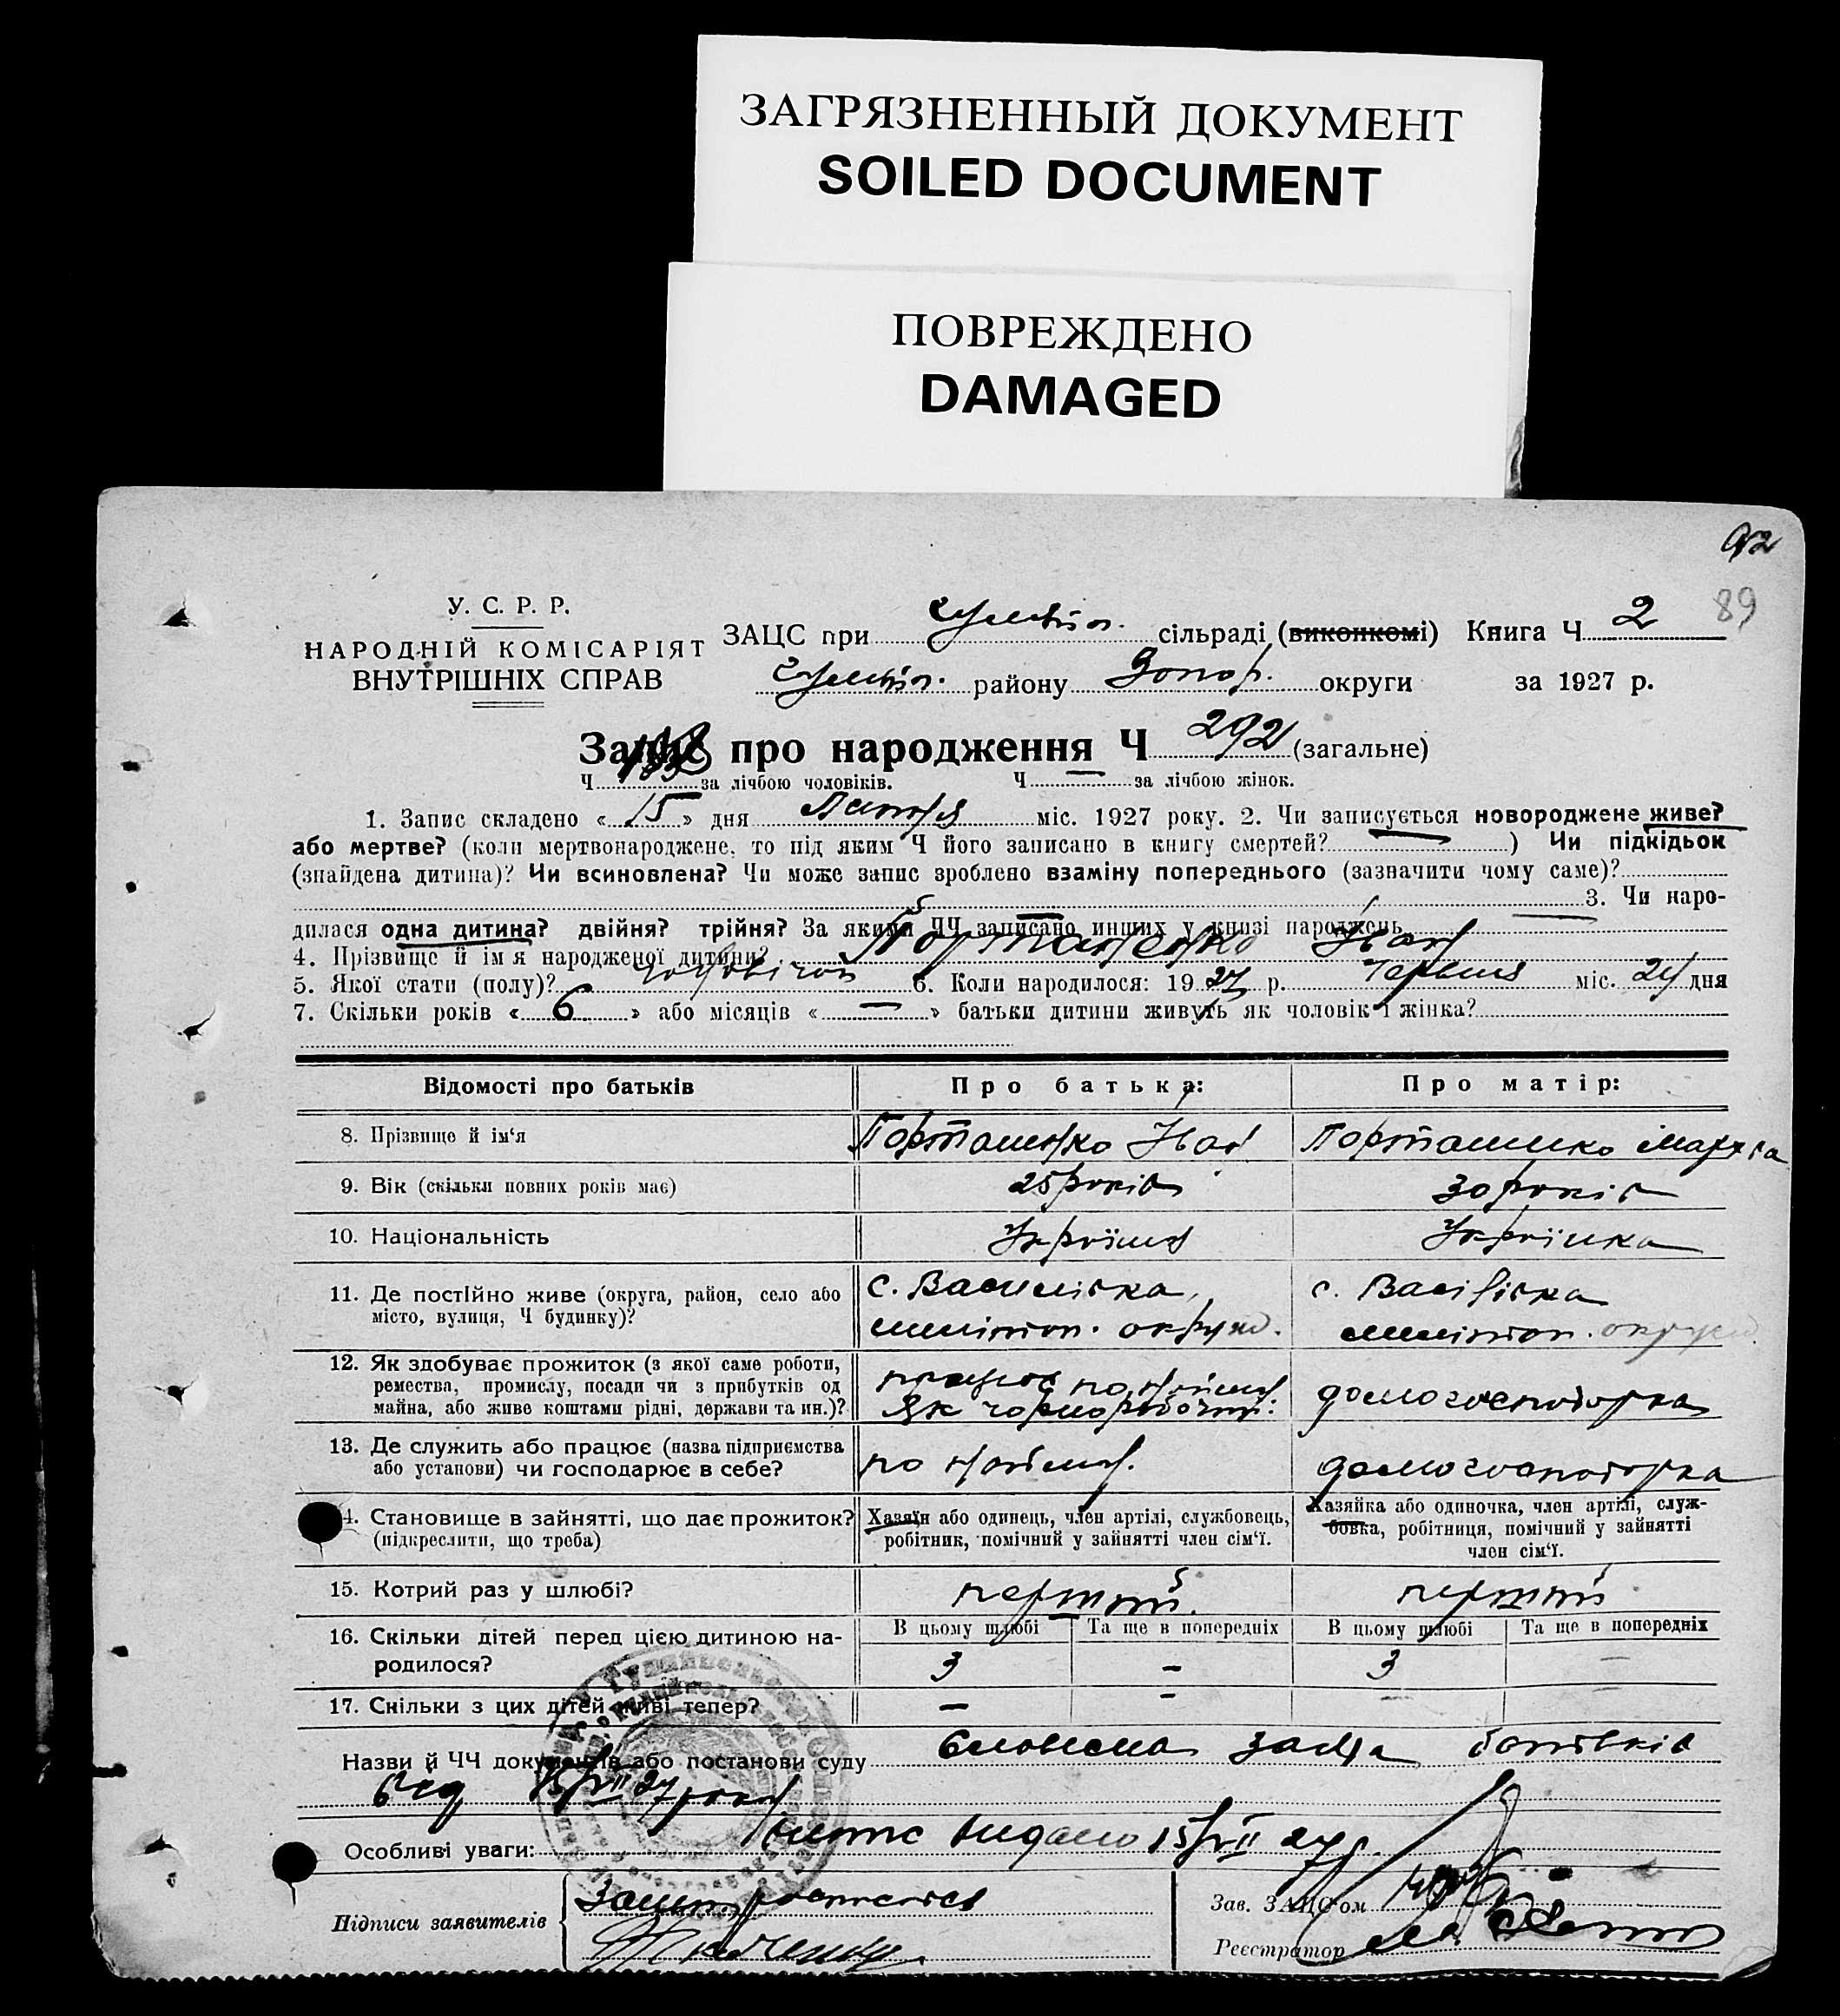 ЗАГРЯЗНЕННЫЙ ДОКУМЕНТ
SOILED DOCUMENT
ПОВРЕЖДЕНО
DAMAGED
92
89
У. С. Р. Р.
НАРОДНІЙ КОМІСАРІЯТ
ВНУТРІШНІХ СПРАВ
ЗАЦС при сільраді (виконкомі) Книга Ч 2
району Запор. округи за 1927 р.
Запис про народження Ч 292 (загальне)
Ч за лічбою чоловіків. Ч — за лічбою жінок.
1. Запис складено « 15 » дня Липня міс. 1927 року. 2. Чи записується новороджене живе?
або мертве? (коли мертвонароджене, то під яким Ч його записано в книгу смертей? — ) Чи підкідьок
(знайдена дитина)? Чи всиновлена? Чи може запис зроблено взаміну попереднього (зазначити чому саме)?
— 3. Чи наро-
дилася одна дитина? двійня? трійня? За якими ЧЧ записано инших у книзі народжень
4. Прізвище й ім'я народженої дитини? Порташенко Іван
5. Якої стати (полу)? чоловічої 6. Коли народилося: 1927 р. Червня міс. 24 дня
7. Скільки років « 6 » або місяців « — » батьки дитини живуть як чоловік і жінка?
Відомості про батьків Про батька: Про матір:
8. Прізвище й ім'я Порташенко Іван Порташенко Марфа
9. Вік (скільки повних років має) 25 років 30 років
10. Національність Українець Українка
11. Де постійно живе (округа, район, село або місто, вулиця, Ч будинку)? с. Василівка, с. Васілівка
мелітоп. округ. мелітоп. округи
12. Як здобуває прожиток (з якої саме роботи,
ремества, промислу, посади чи з прибутків од
майна, або живе коштами рідні, держави та ин.)? працює по найму
Як чорноробочий домогосподарка
13. Де служить або працює (назва підприємства
або установи) чи господарює в себе? по найму. домогосподарка
14. Становище в зайнятті, що дає прожиток?
(підкреслити, що треба)
Хазяїн або одинець, член артілі, службовець,
робітник, помічний у зайнятті член сім'ї.
Хазяйка або одиночка, член артілі, служ-
бовка, робітниця, помічний у зайнятті
член сім'ї.
15. Котрий раз у шлюбі? перший перший
16. Скільки дітей перед цією дитиною на-
родилося?
В цьому шлюбі Та ще в попередніх В цьому шлюбі Та ще в попередніх
3 — 3 —
17. Скільки з цих дітей живі тепер? — — — —
Назви й ЧЧ документів або постанови суду Словесна заява батьків
від 15/VII 27 року
Особливі уваги: видано 15/VII 27 р.
Підписи заявителів
Зав. ЗАЦС'ом
Реєстратор